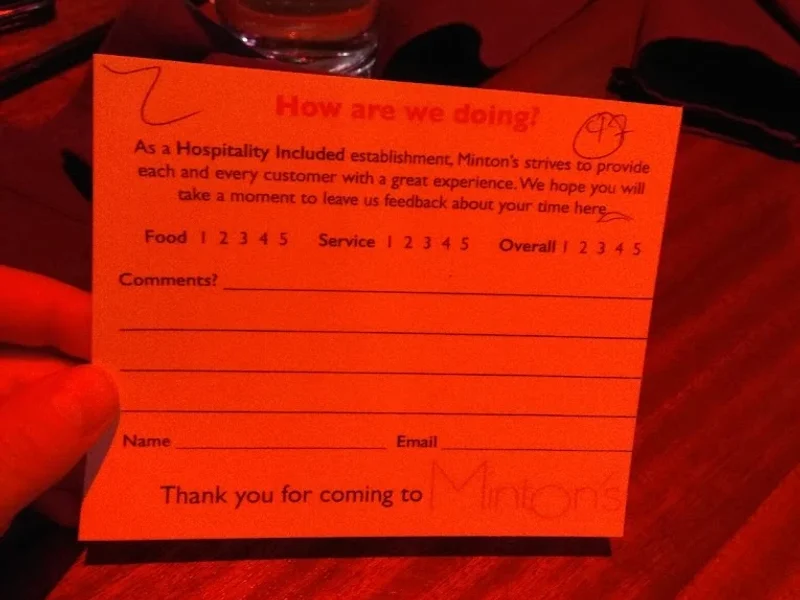 How are we doing?
As a Hospitality Included establishment, Minton's strives to provide
each and every customer with a great experience. We hope you will
take a moment to leave us feedback about your time here
Food 1 2 3 4 5 Service 1 2 3 4 5 Overall 1 2 3 4 5
Comments?
Name Email
Thank you for coming to Minton's